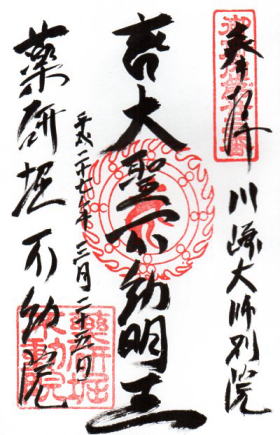 奉拝 川崎大師別院
大聖不動明王
平成二十七年三月二十五日
薬研堀不動院
藥研堀
不動院